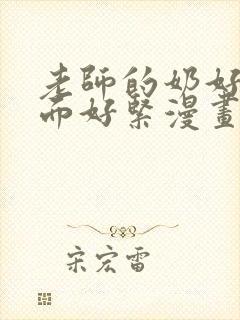 老師的奶好
而好緊漫畫
宋宏雷